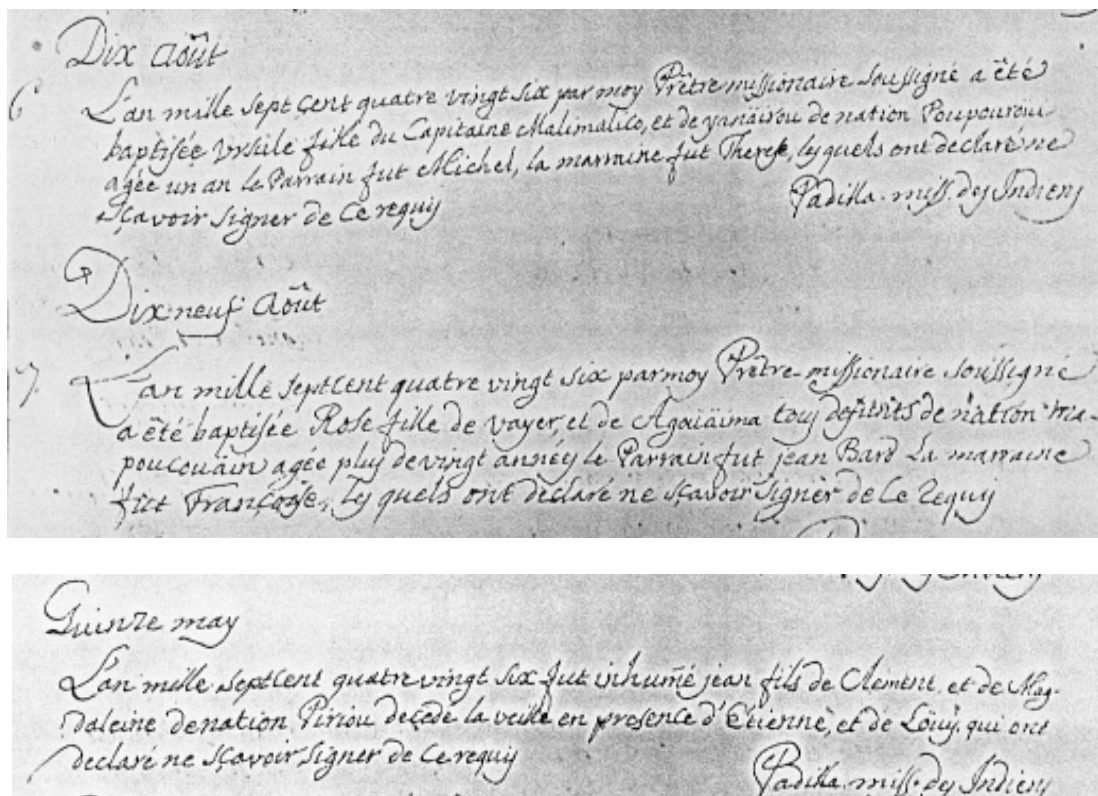 Dix Août
6 L'an mille sept cent quatre vingt six par moy Prêtre missionaire soussigné a été
baptisée Ursule fille du Capitaine Malimalico, et de yanaïrou de nation Poupourou
agée un an le Parrain fut Michel, la marmine fut Therese, lesquels ont declaré ne
sçavoir signer de ce requis
Padilla. miss. des Indiens
Dix neuf Août
7. L'an mille sept cent quatre vingt six par moy Prêtre missionaire soussigné
a été baptisée Rose fille de vayer, et de Agaiaima tous defunts de nation ma-
poucouain agée plus de vingt années le Parrain fut jean Bard La marraine
fut Françoise, les quels ont declaré ne sçavoir signer de ce requis
Quinze may
L'an mille sept cent quatre vingt six fut inhumé jean fils de Clement, et de Mag-
daleine de nation Piriou decede la veille en presence d'Etienne, et de Louis qui ont
declaré ne sçavoir signer de ce requis
Padilla. miss. des Indiens